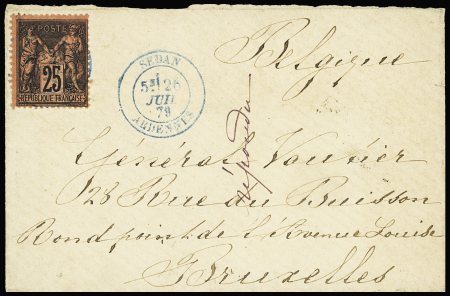 POSTE
25
REPUBLIQUE FRANÇAISE
SEDAN
5E 26
JUIL
79
ARDENNES
Belgique
répondu
Général Vautier
28 Rue du Buisson
Rond point de l'Avenue Louise
Bruxelles